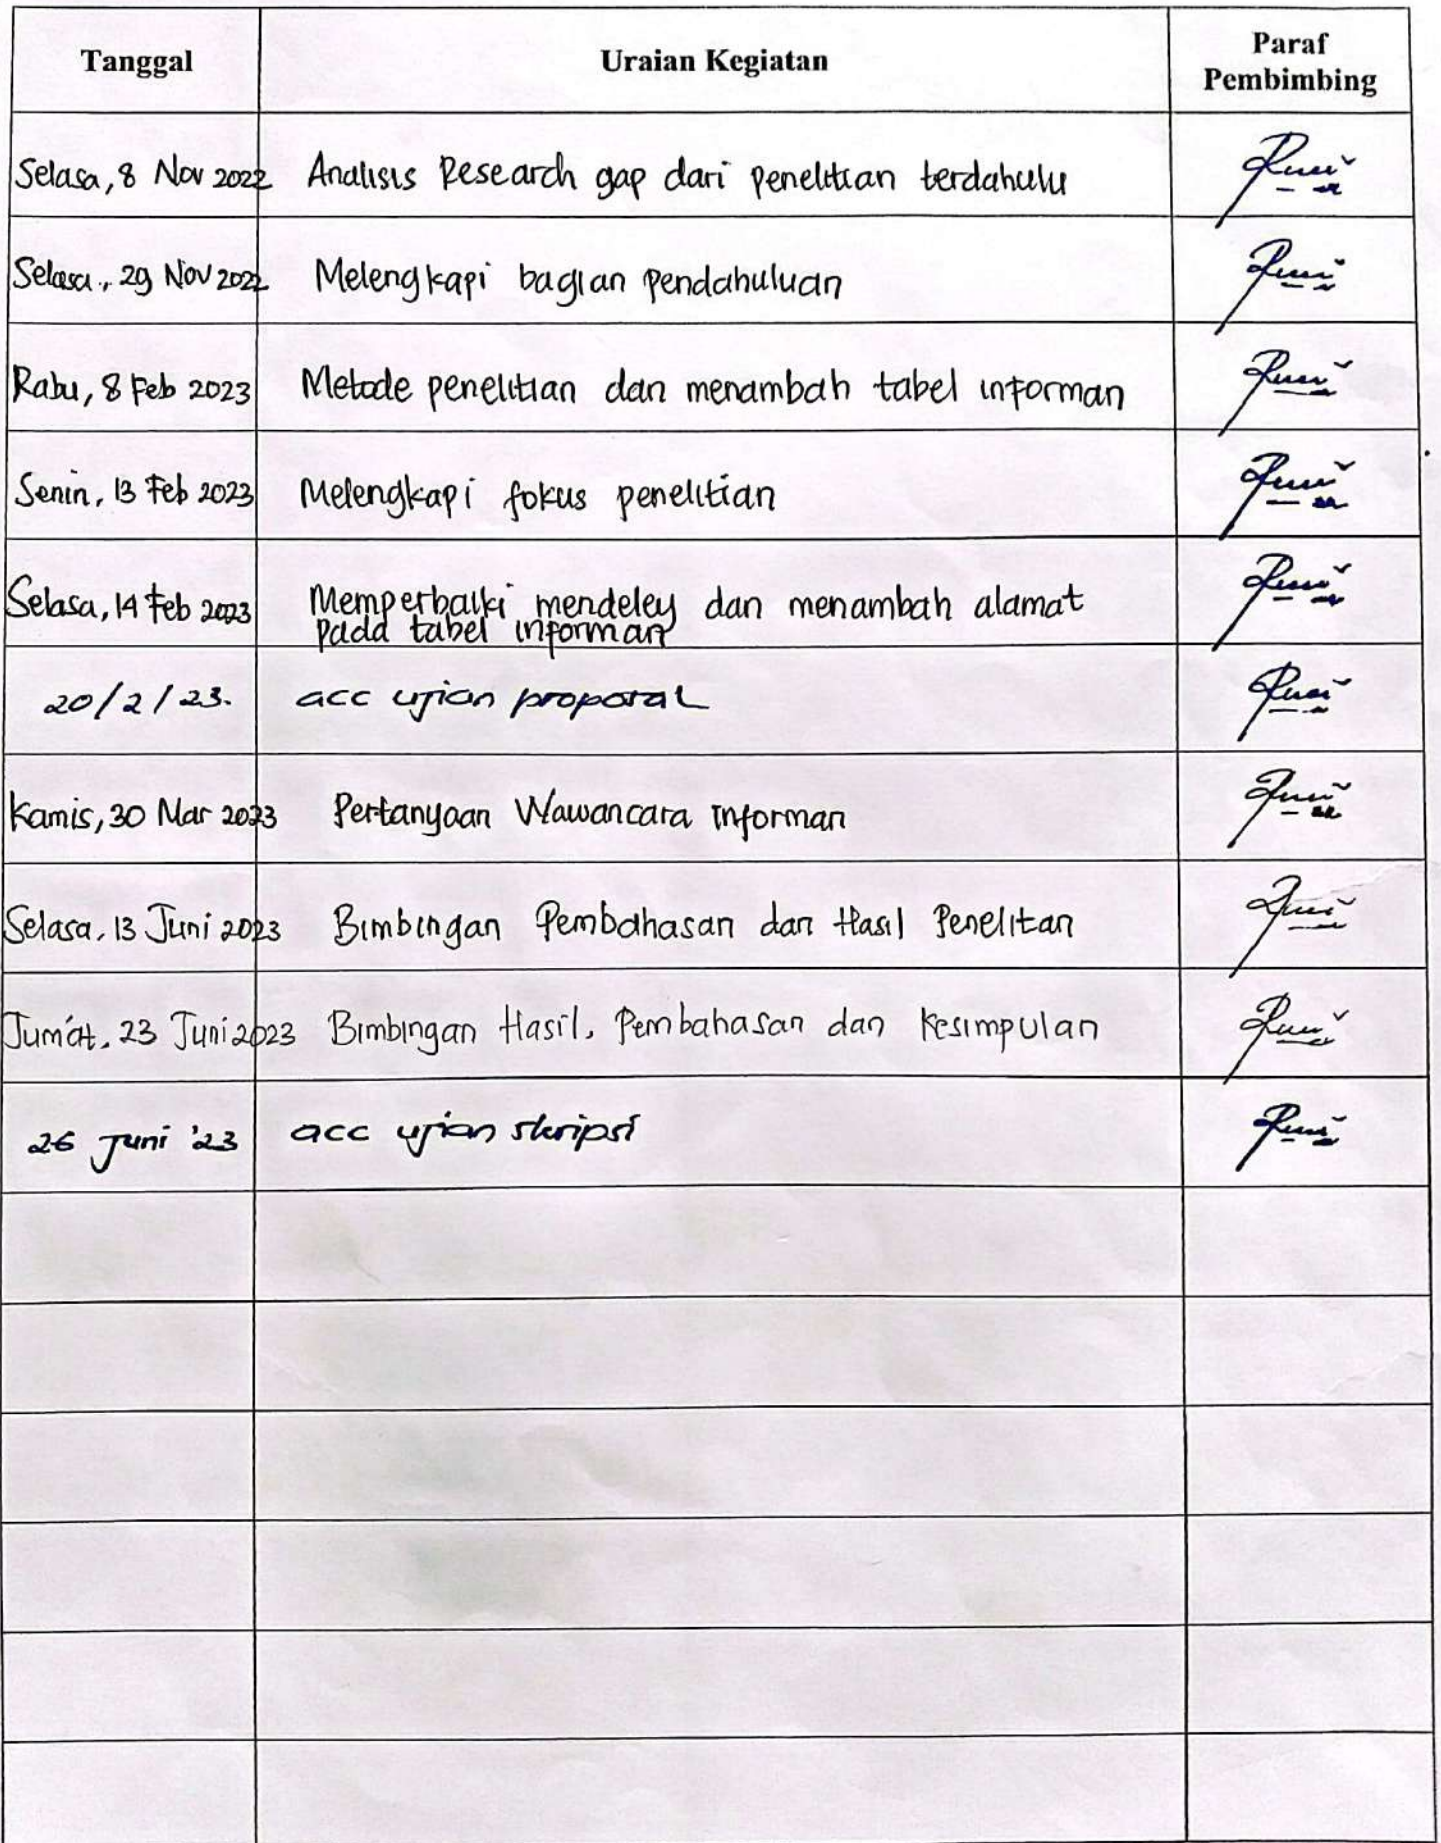 Tanggal Uraian Kegiatan Paraf Pembimbing
Selasa, 8 Nov 2022 Analisis Research gap dari penelitian terdahulu
Selasa, 29 Nov 2022 Melengkapi bagian Pendahuluan
Rabu, 8 Feb 2023 Metode penelitian dan menambah tabel informan
Senin, 13 Feb 2023 Melengkapi fokus penelitian
Selasa, 14 Feb 2023 Memperbaiki mendeley dan menambah alamat
pada tabel informan
20/2/23. acc ujian proposal
Kamis, 30 Mar 2023 Pertanyaan Wawancara Informan
Selasa, 13 Juni 2023 Bimbingan Pembahasan dan Hasil Penelitan
Jum'at, 23 Juni 2023 Bimbingan Hasil, Pembahasan dan Kesimpulan
26 Juni '23 acc ujian skripsi